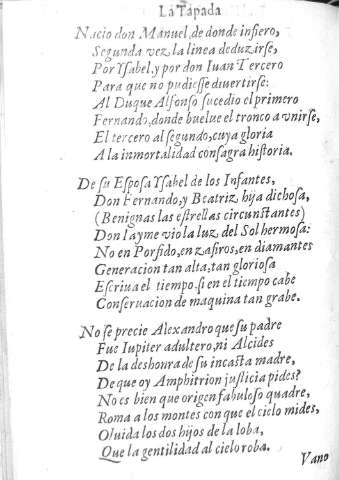 La Tapada
Nacio don Manuel, de donde infiero,
Segunda vez la linea deduzirse,
Por Ysabel, y por don Iuan Tercero
Para que no pudiesse diuertirse:
Al Duque Alfonso sucedio el primero
Fernando, donde buelue el tronco a vnirse,
El tercero al segundo, cuya gloria
A la inmortalidad consagra historia.
De su Esposa Ysabel de los Infantes,
Don Fernando, y Beatriz hija dichosa,
(Benignas las estrellas circunstantes)
Don Iayme vio la luz del Sol hermosa:
No en Porfido, en zafiros, en diamantes
Generacion tan alta, tan gloriosa
Escriua el tiempo, si en el tiempo cabe
Conseruacion de maquina tan grabe.
No se precie Alexandro que su padre
Fue Iupiter adultero, ni Alcides
De la deshonra de su incasta madre,
De que oy Amphitrion justicia pides?
No es bien que origen fabuloso quadre,
Roma a los montes con que el cielo mides,
Oluida los dos hijos de la loba,
Que la gentilidad al cielo roba.
Vano